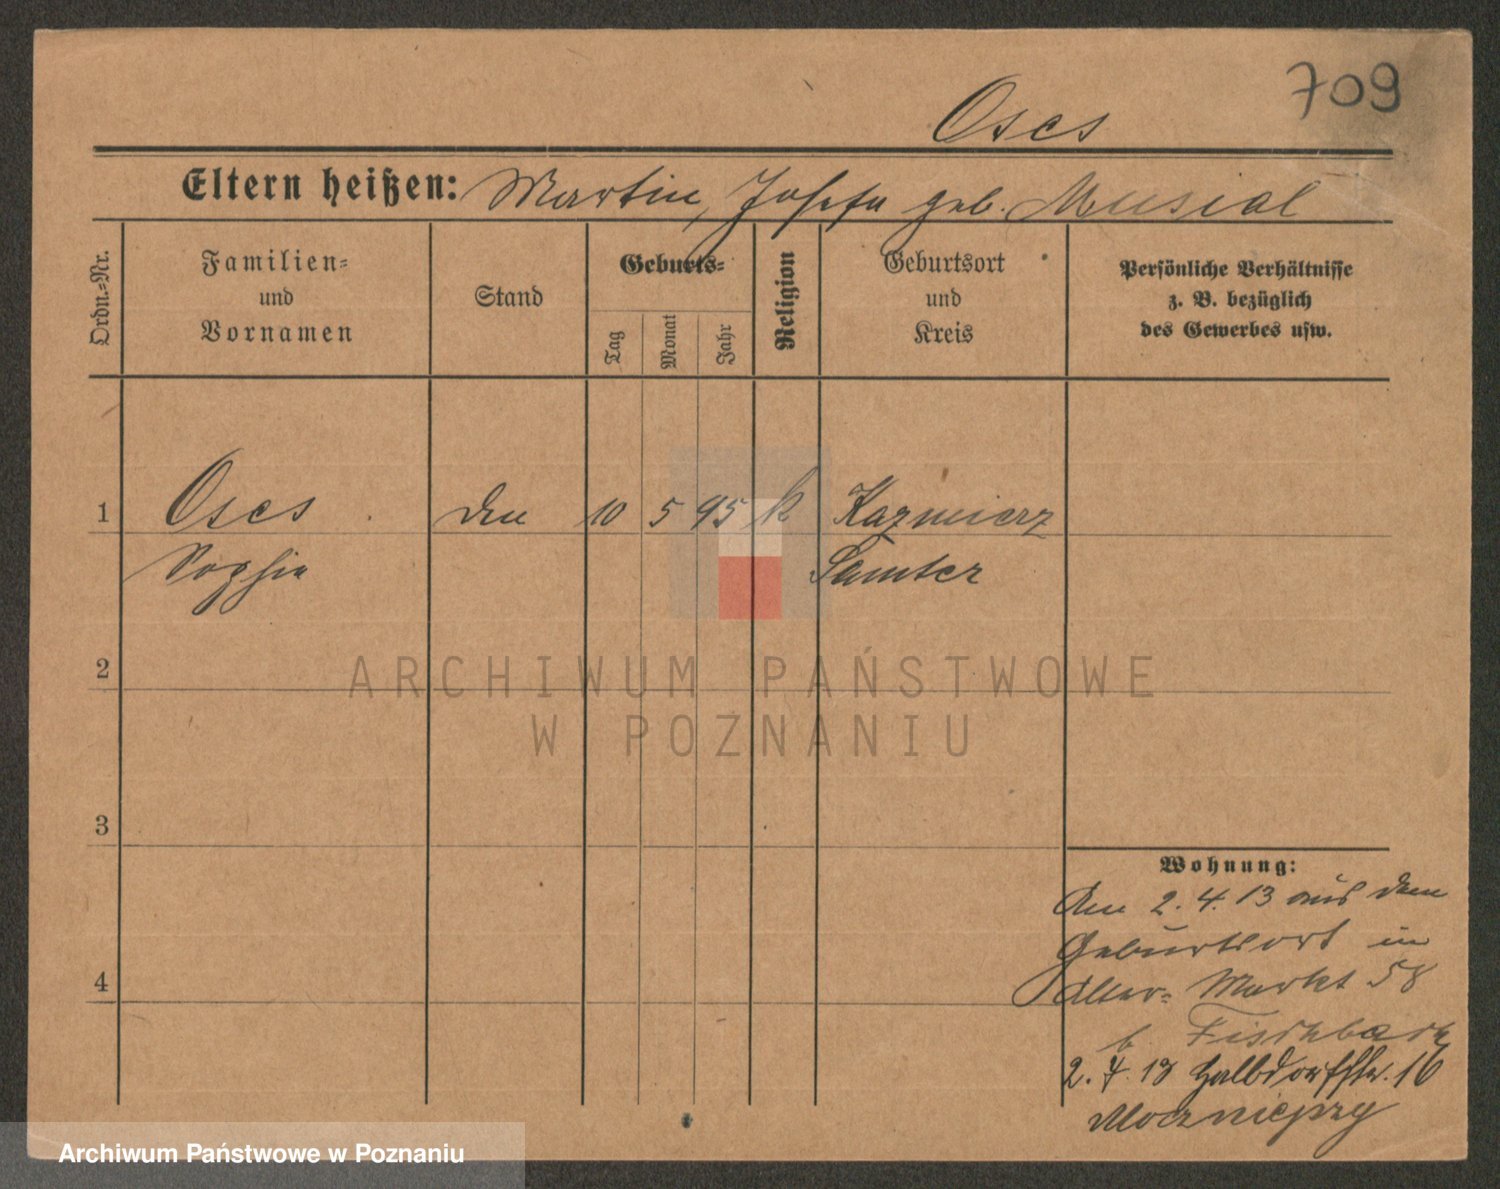 709
Oses
Eltern heißen: Martin, Josefa geb. Musial
Ordn.-Nr.
Familien-
und
Vornamen
Stand
Geburts-
Tag
Monat
Jahr
Religion
Geburtsort
und
Kreis
Persönliche Verhältnisse
z. B. bezüglich
des Gewerbes usw.
1 Oses 10 5 95 k Kazmierz
Sophia Samter
2
3
4
Wohnung:
Am 2. 4. 13 aus dem
Geburtsort in
Alter- Markt 58
b. Fischbach
2. 7. 13 Halbdorfstr. 16
ARCHIWUM PAŃSTWOWE
W POZNANIU
Archiwum Państwowe w Poznaniu